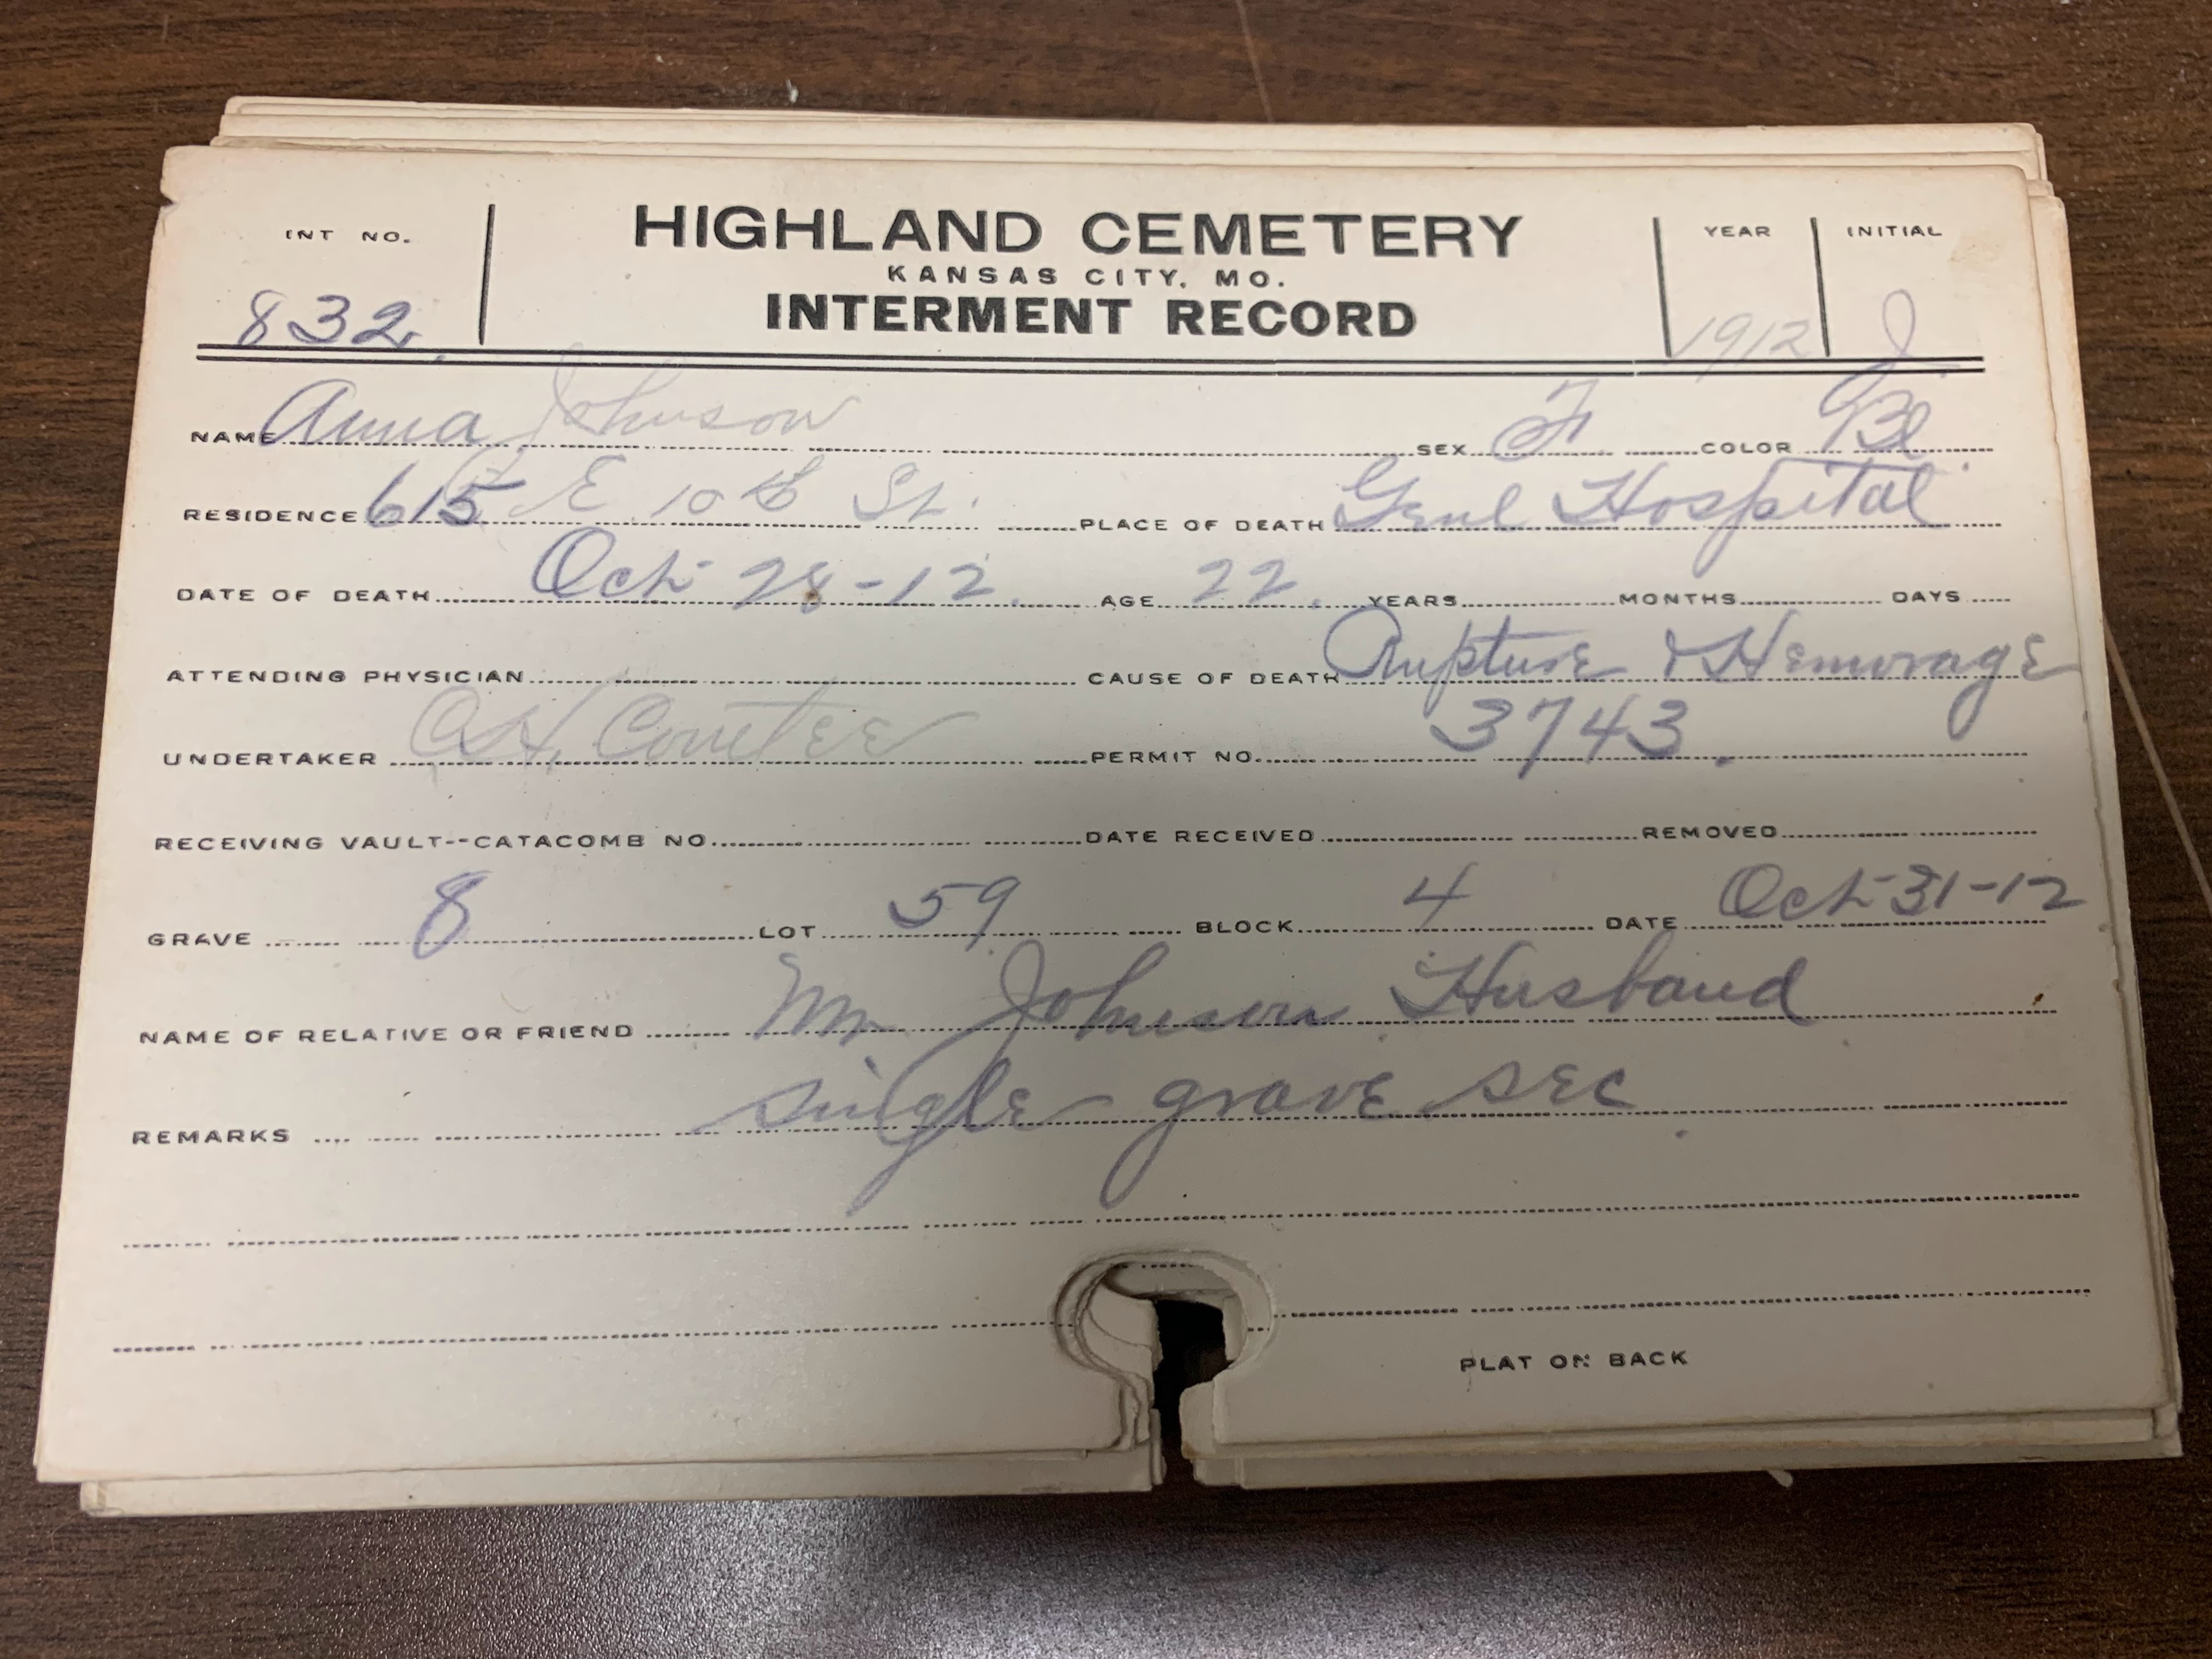 INT NO. HIGHLAND CEMETERY YEAR INITIAL
KANSAS CITY, MO.
832. INTERMENT RECORD 1912 J
NAME Anna Johnson SEX F COLOR Bl
RESIDENCE 615 E 10th St. PLACE OF DEATH Genl Hospital
DATE OF DEATH Oct 28-12. AGE 22. YEARS MONTHS DAYS
ATTENDING PHYSICIAN CAUSE OF DEATH Rupture & Hemorage
UNDERTAKER Countee PERMIT NO. 3743.
RECEIVING VAULT--CATACOMB NO. DATE RECEIVED REMOVED
GRAVE 8 LOT 59 BLOCK 4 DATE Oct 31-12
NAME OF RELATIVE OR FRIEND Mr Johnson Husband
REMARKS single grave sec
PLAT ON BACK